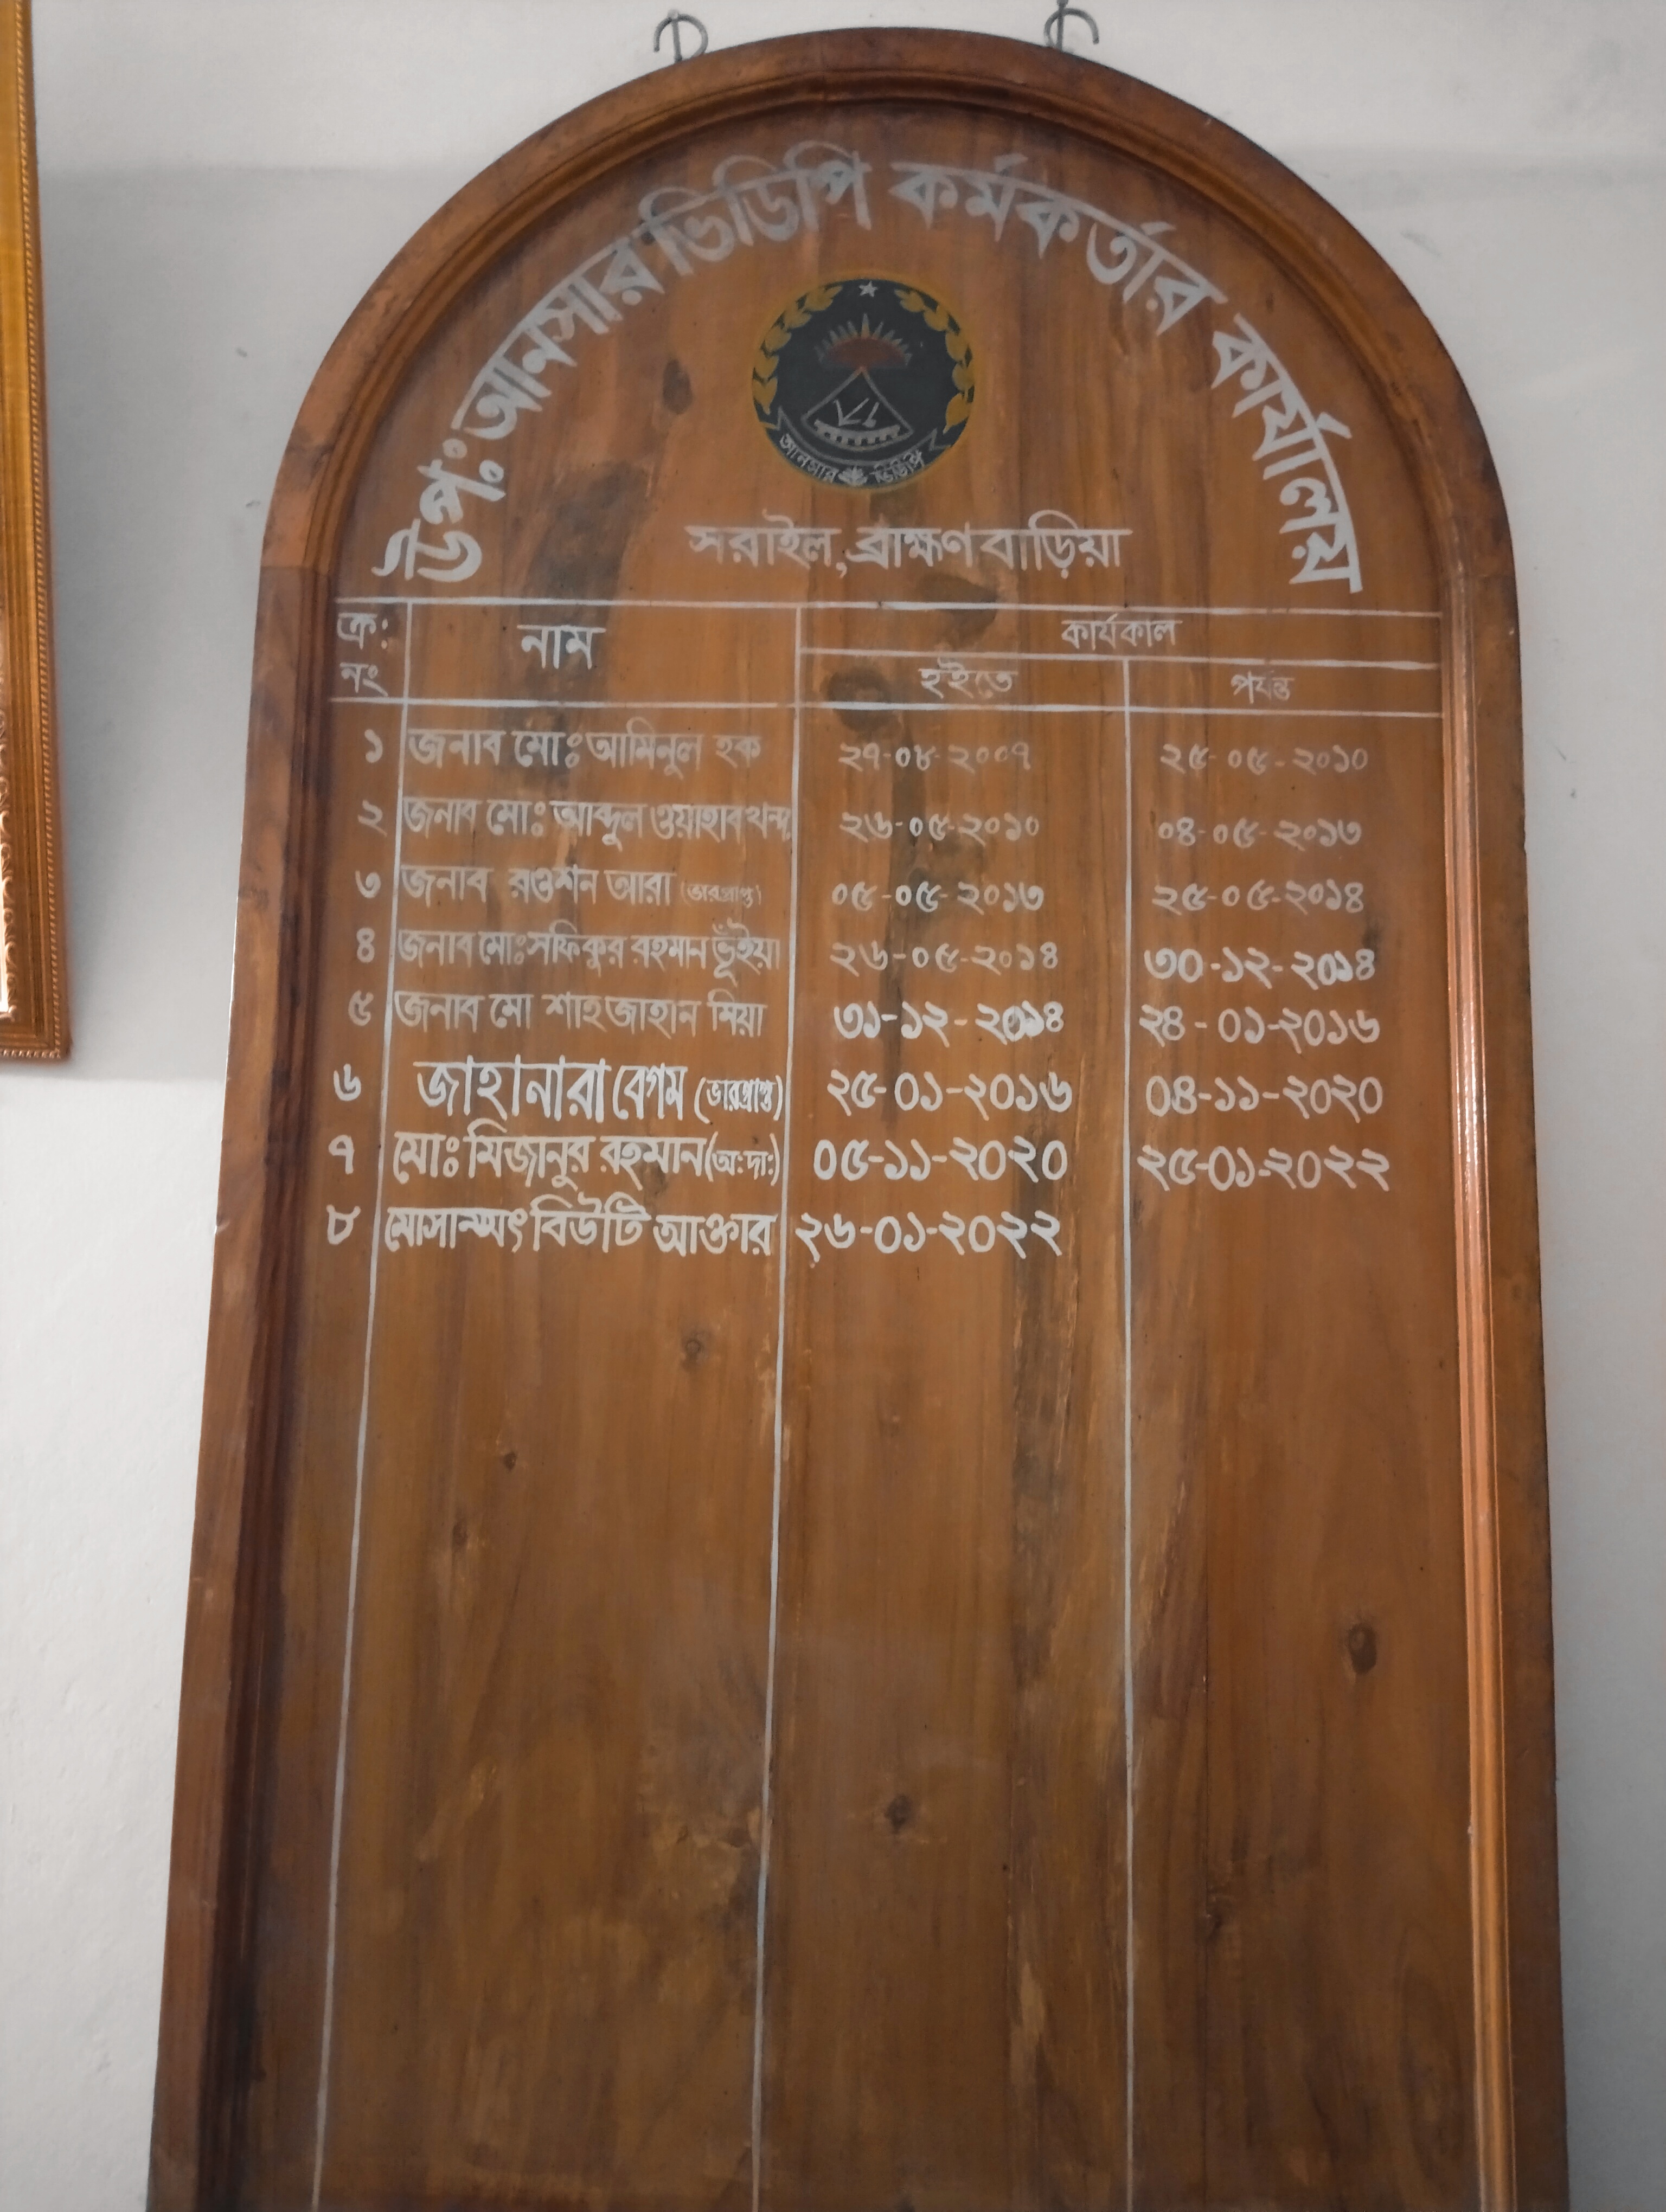 উপ: আনসার ভিডিপি কর্মকর্তার কার্যালয়
আনসার ভিডিপি
সরাইল, ব্রাহ্মণবাড়িয়া
ক্র: নং নাম কার্যকাল
হইতে পর্যন্ত
১ জনাব মোঃ আমিনুল হক ২৭-০৮-২০০৭ ২৫-০৫-২০১০
২ জনাব মোঃ আব্দুল ওয়াহাব খন্দ ২৬-০৫-২০১০ ০৪-০৫-২০১৩
৩ জনাব রওশন আরা (ভারপ্রাপ্ত) ০৫-০৫-২০১৩ ২৫-০৫-২০১৪
৪ জনাব মোঃ সফিকুর রহমান ভূঁইয়া ২৬-০৫-২০১৪ ৩০-১২-২০১৪
৫ জনাব মো শাহজাহান মিয়া ৩১-১২-২০১৪ ২৪-০১-২০১৬
৬ জাহানারা বেগম (ভারপ্রাপ্ত) ২৫-০১-২০১৬ ০৪-১১-২০২০
৭ মোঃ মিজানুর রহমান (অ:দা:) ০৫-১১-২০২০ ২৫-০১-২০২২
৮ মোসাম্মৎ বিউটি আক্তার ২৬-০১-২০২২